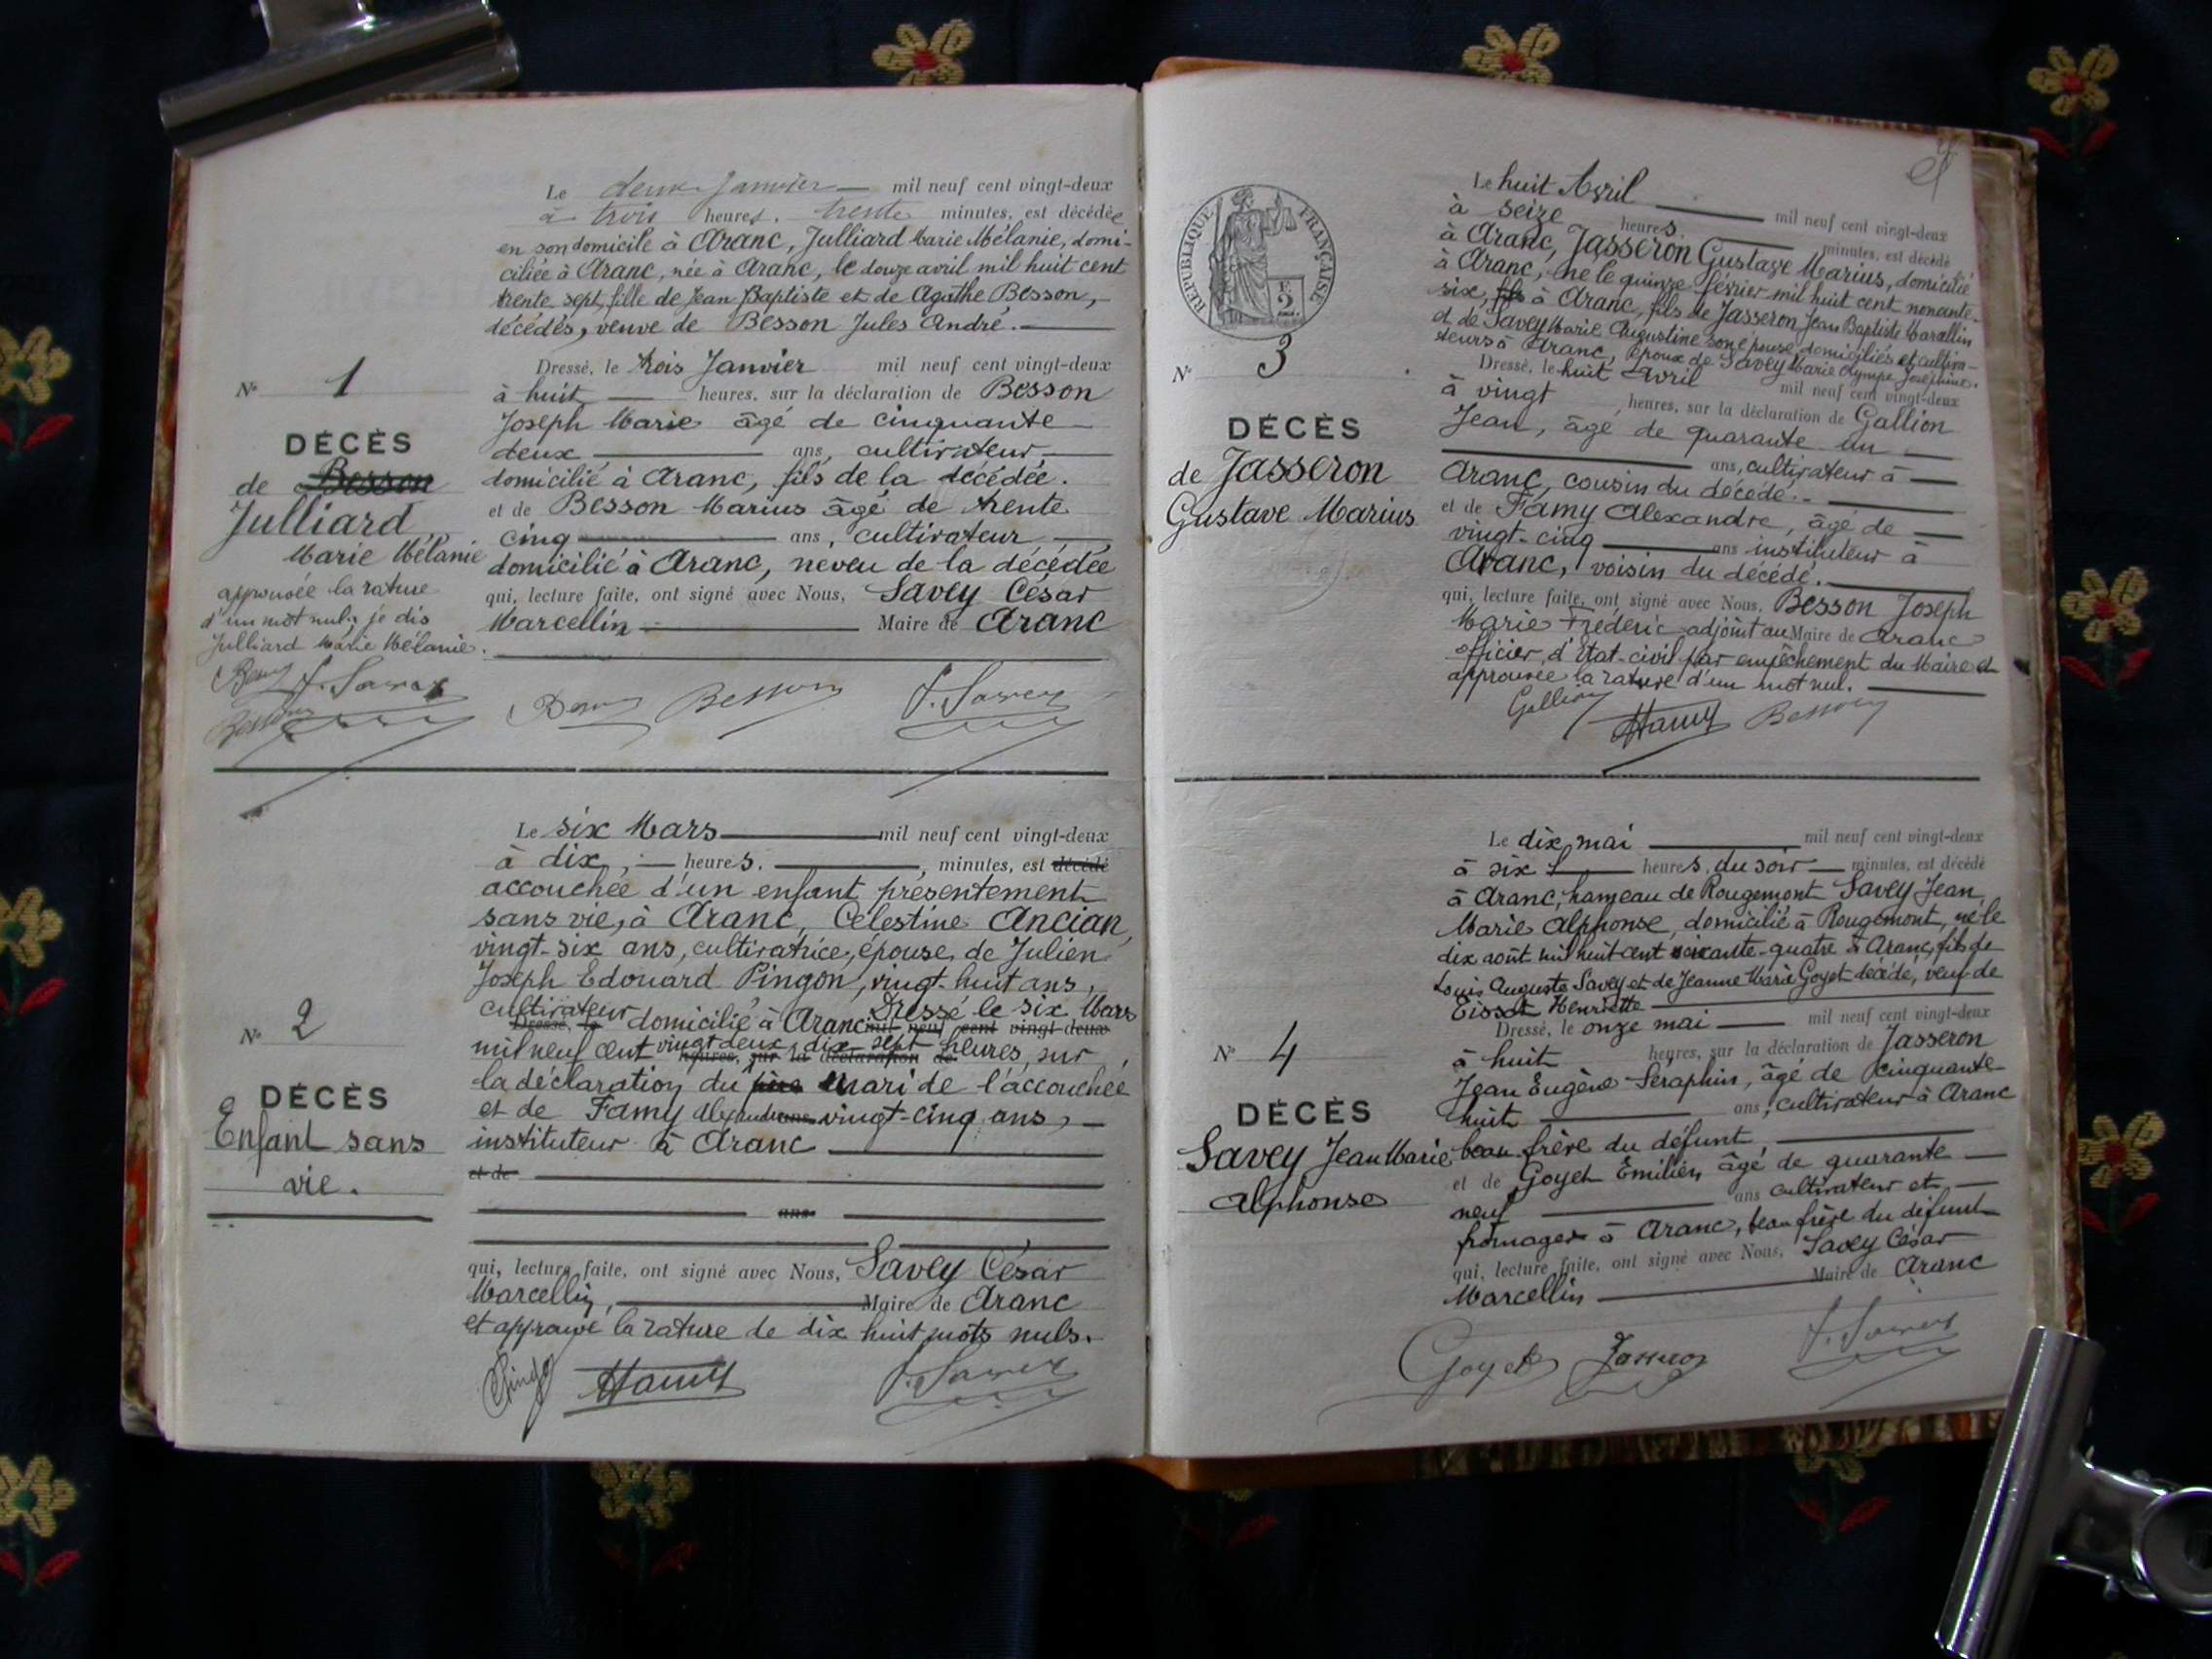 Le deux Janvier mil neuf cent vingt-deux
à trois heures. trente minutes, est décédée
en son domicile à Aranc, Julliard Marie Mélanie, domi-
ciliée à Aranc, née à Aranc, le douze avril mil huit cent
trente sept, fille de Jean Baptiste et de Agathe Besson,
décédés, veuve de Besson Jules André.
Dressé, le trois Janvier mil neuf cent vingt-deux
à huit heures, sur la déclaration de Besson
Joseph Marie âgé de cinquante
deux ans, cultivateur,
domicilié à Aranc, fils de la décédée.
et de Besson Marius âgé de trente
cinq ans, cultivateur
domicilié à Aranc, neveu de la décédée
qui, lecture faite, ont signé avec Nous, Savey César
Marcellin Maire de Aranc
N° 1
DÉCÈS
de Besson
Julliard
Marie Mélanie
approuvée la rature
d'un mot nul; je dis
Julliard Marie Mélanie.
Besson J. Savey
Besson
Besson Besson J. Savey
Le six Mars mil neuf cent vingt-deux
à dix, heures. minutes, est décédé
accouchée d'un enfant présentement
sans vie, à Aranc, Célestine Ancian,
vingt-six ans, cultivatrice, épouse de Julien
Joseph Edouard Pingon, vingt-huit ans,
cultivateur domicilié à Aranc. Dressé le six Mars
Dressé, le mil neuf cent vingt-deux
mil neuf cent vingt deux, dix-sept heures, sur
heures, sur la déclaration de
la déclaration du père mari de l'accouchée
et de Famy Alexandre vingt-cinq ans,
instituteur à Aranc
et de
ans
qui, lecture faite, ont signé avec Nous, Savey César
Marcellin, Maire de Aranc
et approuvé la rature de dix huit mots nuls.
N° 2
DÉCÈS
Enfant sans
vie.
Pingon AFamy J. Savey
RÉPUBLIQUE FRANÇAISE
2
Le huit Avril mil neuf cent vingt-deux
à seize heures. minutes, est décédé
à Aranc, Jasseron Gustave Marius, domicilié
à Aranc, né le quinze février mil huit cent nonante-
six, fils à Aranc, fils de Jasseron Jean Baptiste Marcellin
et de Savey Marie Augustine son épouse, domiciliés et cultiva-
teurs à Aranc, époux de Savey Marie Olympe Joséphine.
Dressé, le huit Avril mil neuf cent vingt-deux
à vingt heures, sur la déclaration de Gallion
Jean, âgé de quarante un
ans, cultivateur à
Aranc, cousin du décédé.
et de Famy Alexandre, âgé de
vingt-cinq ans instituteur à
Aranc, voisin du décédé.
qui, lecture faite, ont signé avec Nous, Besson Joseph
Marie Frédéric adjoint au Maire de Aranc
officier d'Etat-civil par empêchement du Maire et
approuvée la rature d'un mot nul.
N° 3
DÉCÈS
de Jasseron
Gustave Marius
Gallion AFamy Besson
Le dix mai mil neuf cent vingt-deux
à six heures du soir minutes, est décédé
à Aranc, hameau de Rougemont Savey Jean
Marie Alphonse, domicilié à Rougemont, né le
dix août mil huit cent soixante-quatre à Aranc, fils de
Louis Auguste Savey et de Jeanne Marie Goyet décédé, veuf de
Henriette
Dressé, le onze mai mil neuf cent vingt-deux
à huit heures, sur la déclaration de Jasseron
Jean Eugène Séraphin, âgé de cinquante-
huit ans, cultivateur à Aranc
beau-frère du défunt,
et de Goyet Emilien âgé de quarante
neuf ans cultivateur et
fromager à Aranc, beau frère du défunt
qui, lecture faite, ont signé avec Nous, Savey César
Marcellin Maire de Aranc
N° 4
DÉCÈS
Savey Jean Marie
Alphonse
Goyet Jasseron J. Savey